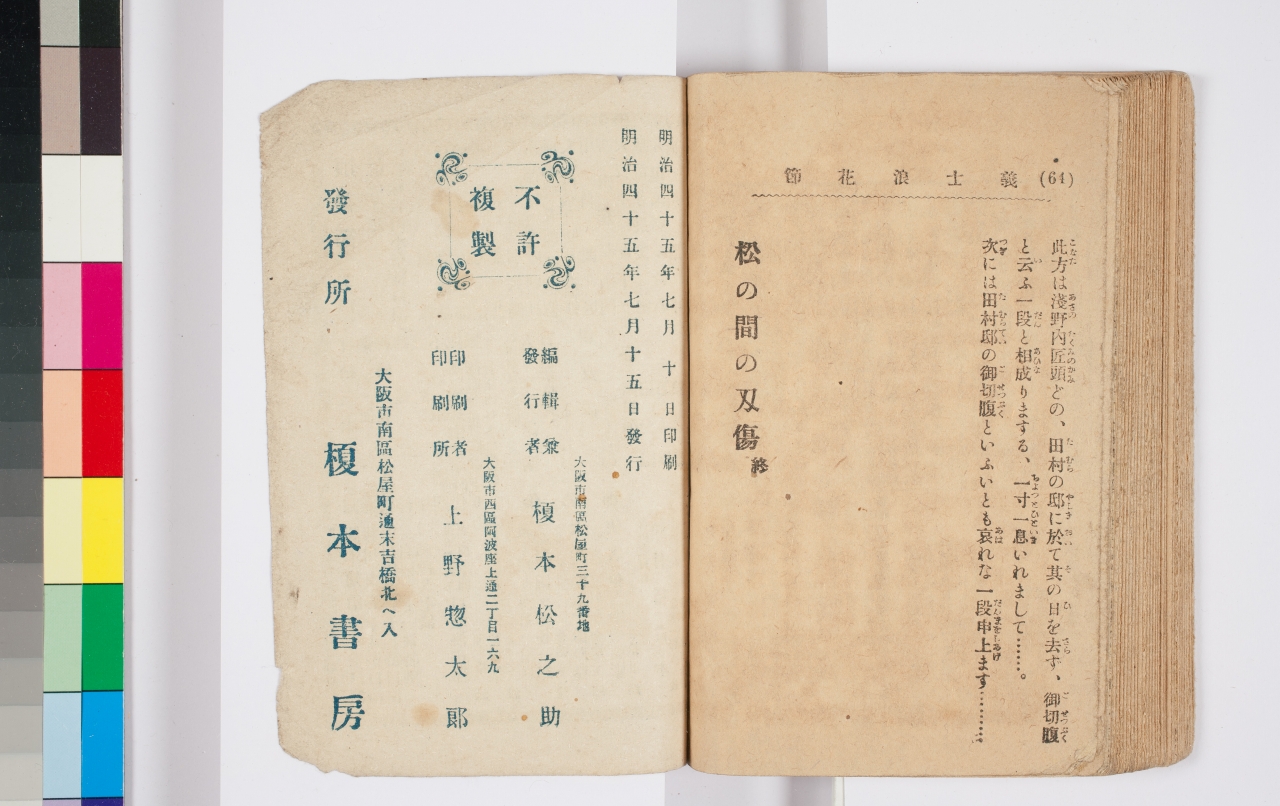 (64) 義士浪花節
此方は淺野內匠頭どの、田村の邸に於て其の日を去ず、御切腹
と云ふ一段と相成りまする、一寸一息いれまして……。
次には田村邸の御切腹といふいとも哀れな一段申上ます………
松の間の刄傷 終
明治四十五年七月十日印刷
明治四十五年七月十五日發行
不許
複製
大阪市南區松屋町三十九番地
編輯兼
發行者 榎本松之助
大阪市西區阿波座上通二丁目一六九
印刷者
印刷所 上野惣太郎
大阪市南區松屋町通末吉橋北へ入
發行所 榎本書房